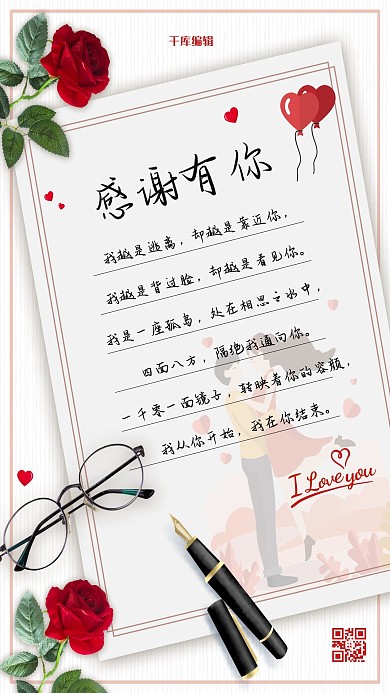 千库编辑
感谢有你
我越是逃离，却越是靠近你，
我越是背过脸，却越是看见你。
我是一座孤岛，处在相思之水中，
四面八方，隔绝我通向你。
一千零一面镜子，转映着你的容颜，
我从你开始，我在你结束。
I Love you